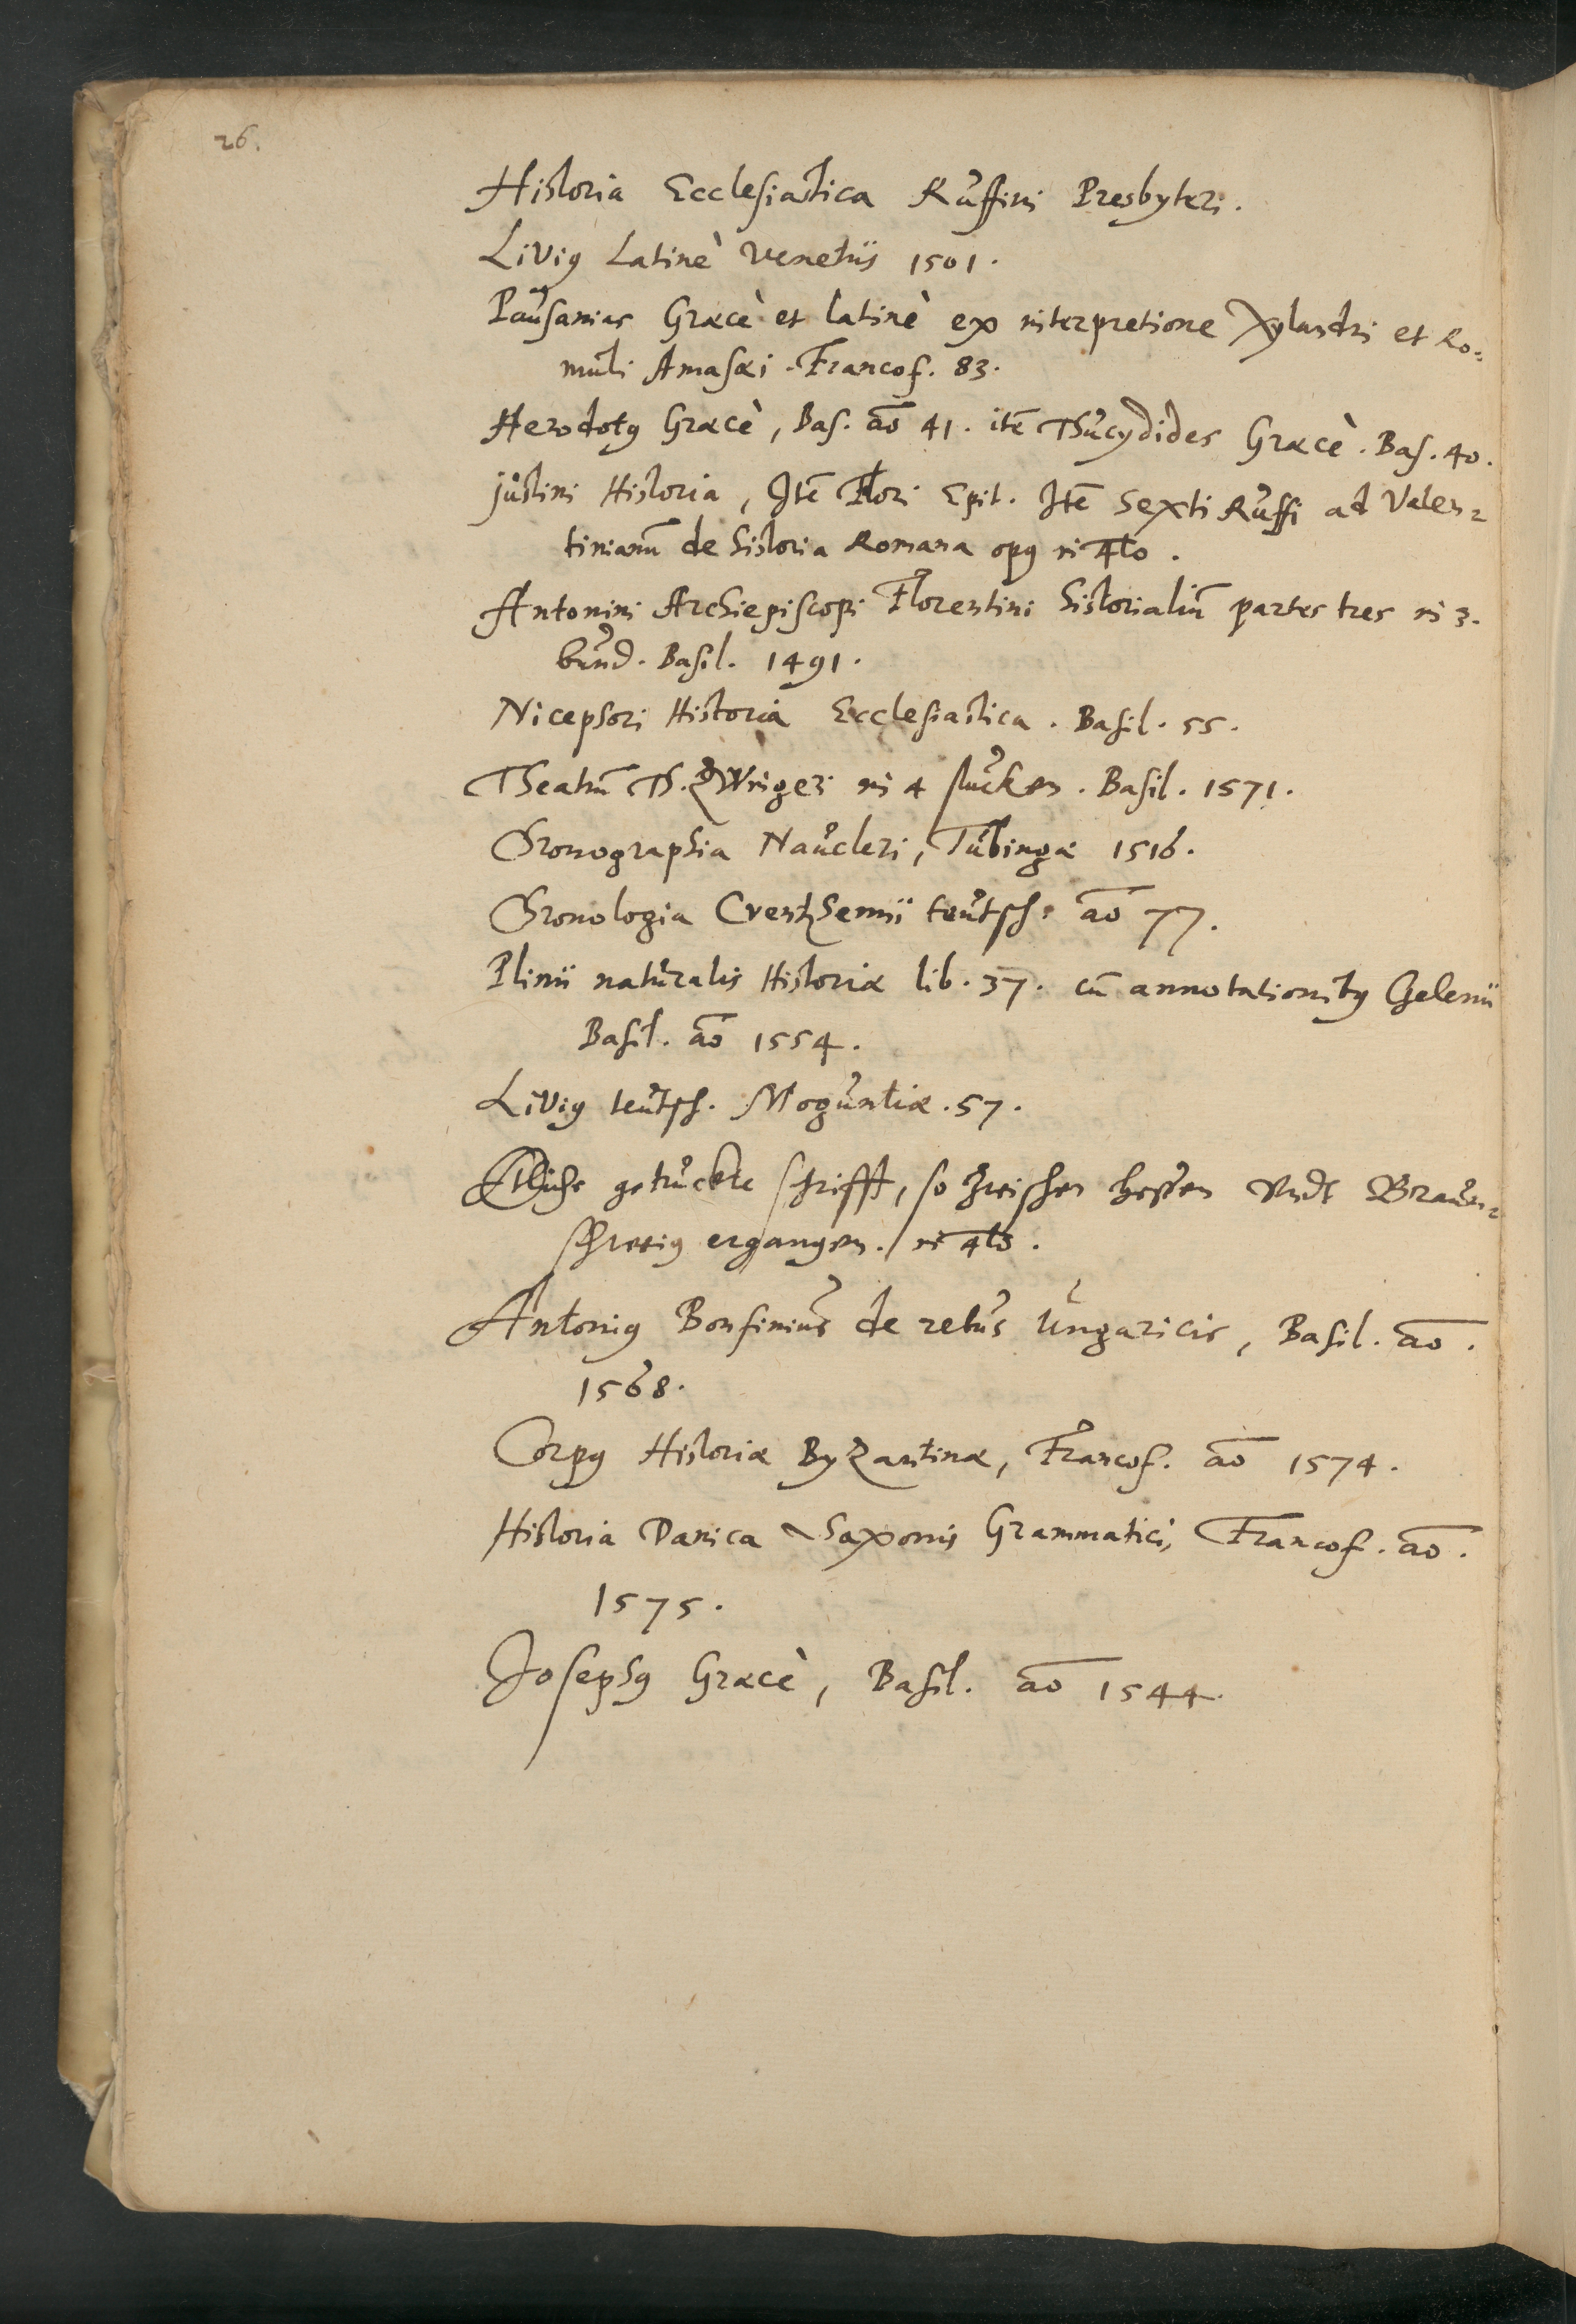 26.
Historia Ecclesiastica Ruffini Presbyteri.
Livius Latinè Venetiis 1501.
Pausanias Græcè et latinè ex interpretione Xylandri et Ro=
muli Amasæi. Francof. 83.
Herodotus Græcè, Bas. aõ 41. itẽ Thucydides Græcè. Bas. 40.
Justini Historia, Itẽ Flori Epit. Itẽ Sexti Ruffi ad Valen=
tinianũ de historia Romana opus in 4to.
Antonini Archiepiscopi Florentini historialiũ partes tres in 3.
bund. Basil. 1491.
Nicephori Historia Ecclesiastica. Basil. 55.
Theatrũ Th. Zwingeri in 4 stucken. Basil. 1571.
Chronographia Naucleri, Tubingæ 1516.
Chronologia Crentzhemii teutsch. aõ 77.
Plinii naturalis Historiæ lib. 37. cũ annotationibus Gelenii
Basil. aõ 1554.
Livius teutsch. Moguntiæ. 57.
Etliche getruckte schrifft, so zwischen hessen vndt Braun=
schweig ergangen. in 4to.
Antonius Bonfinius de rebus Ungaricis, Basil. aõ.
1568.
Corpus Historiæ Byzantinæ, Francof. aõ 1574.
Historia Danica Saxonis Grammatici, Francof. aõ.
1575.
Josephus Græcè, Basil. aõ 1544.